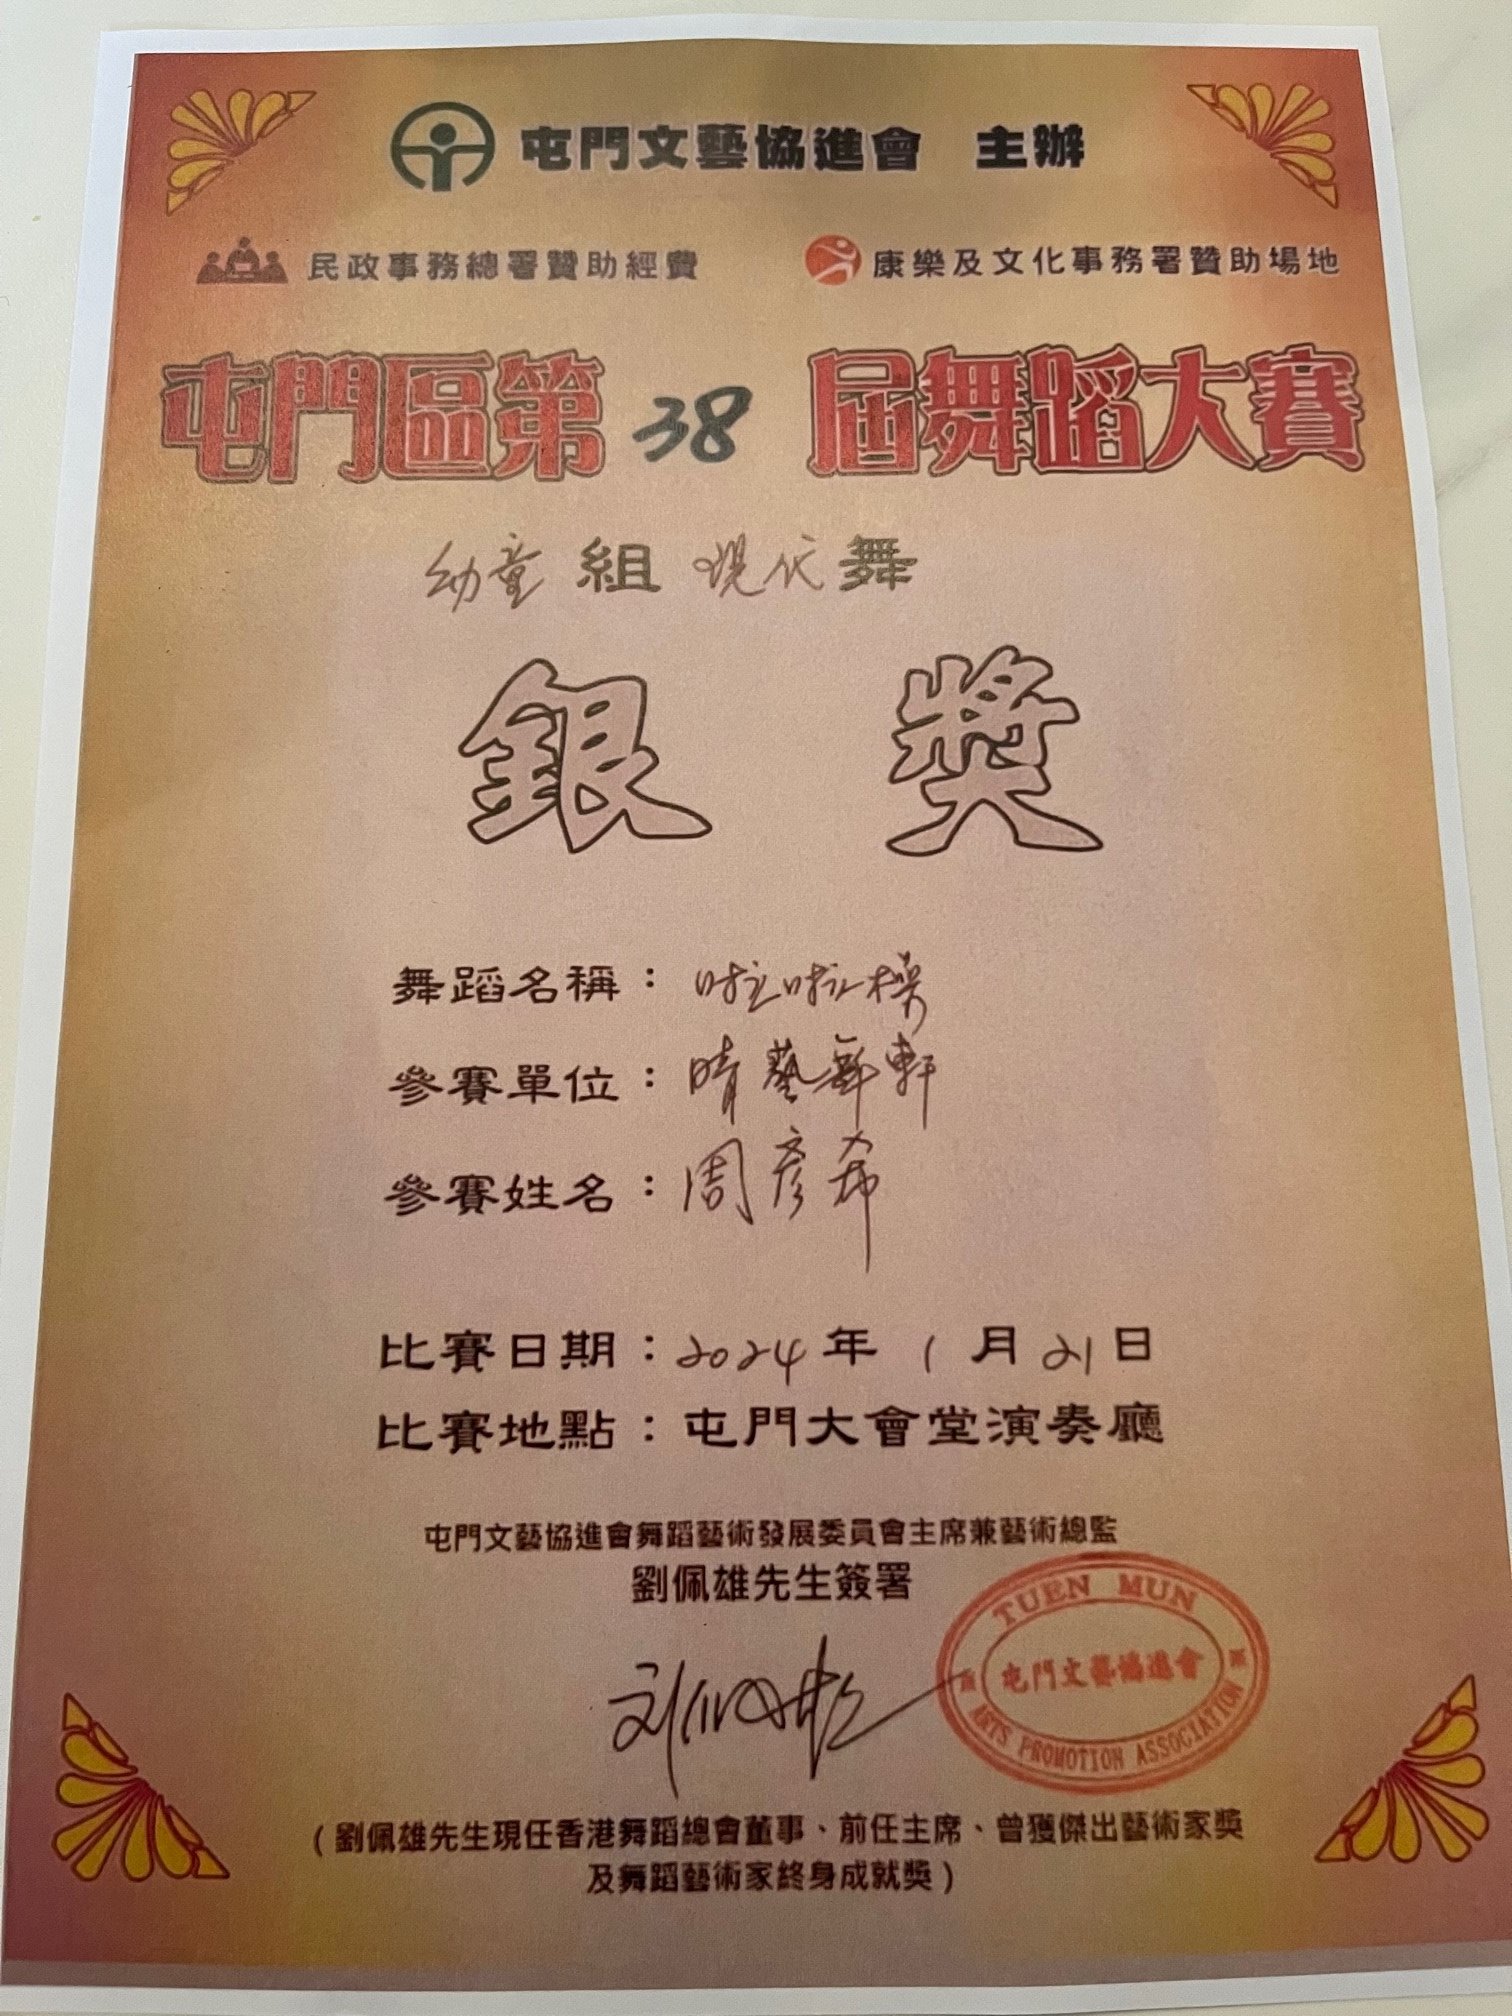 屯門文藝協進會 主辦
民政事務總署贊助經費 康樂及文化事務署贊助場地
屯門區第38屆舞蹈大賽
幼童組現代舞
銀獎
舞蹈名稱：啦啦操
參賽單位：晴藝舞軒
參賽姓名：周彥希
比賽日期：2024年1月21日
比賽地點：屯門大會堂演奏廳
屯門文藝協進會舞蹈藝術發展委員會主席兼藝術總監
劉佩雄先生簽署
TUEN MUN
屯門文藝協進會
ARTS PROMOTION ASSOCIATION
（劉佩雄先生現任香港舞蹈總會董事、前任主席、曾獲傑出藝術家獎
及舞蹈藝術家終身成就獎）